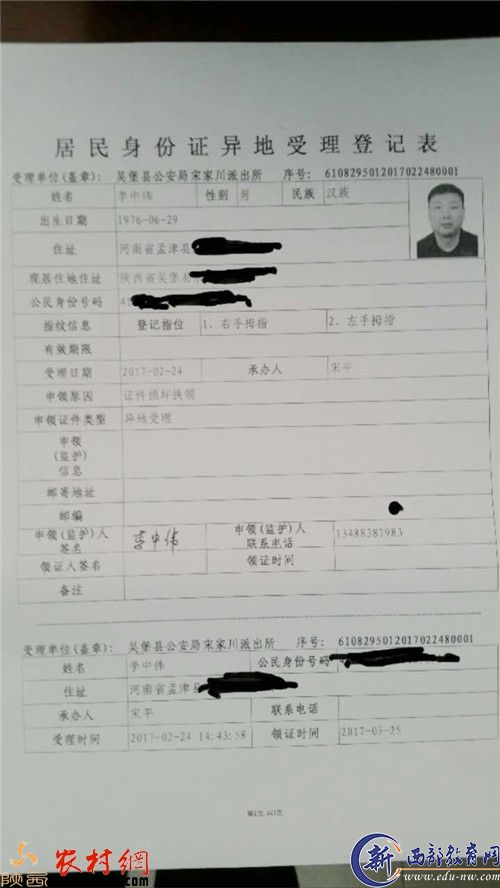 居民身份证异地受理登记表
受理单位(盖章): 吴堡县公安局宋家川派出所 序号: 6108295012017022480001
姓名 李中伟 性别 男 民族 汉族
出生日期 1976-06-29
住址 河南省孟津县
现居住地住址 陕西省吴堡县
公民身份号码 4
指纹信息 登记指位 1、右手拇指 2、左手拇指
有效期限
受理日期 2017-02-24 承办人 宋平
申领原因 证件损坏换领
申领证件类型 异地受理
申领
(监护)
信息
邮寄地址
邮编
申领(监护)人
签名 李中伟 申领(监护)人
联系电话 13488387983
领证人签名 领证时间
备注
受理单位(盖章): 吴堡县公安局宋家川派出所 序号: 6108295012017022480001
姓名 李中伟 公民身份号码
住址 河南省孟津县
承办人 宋平 联系电话
受理时间 2017-02-24 14:43:58 领证时间 2017-03-25
第1页,共1页
陕西 农村網
新 西部教育网
www.edu-nw.com